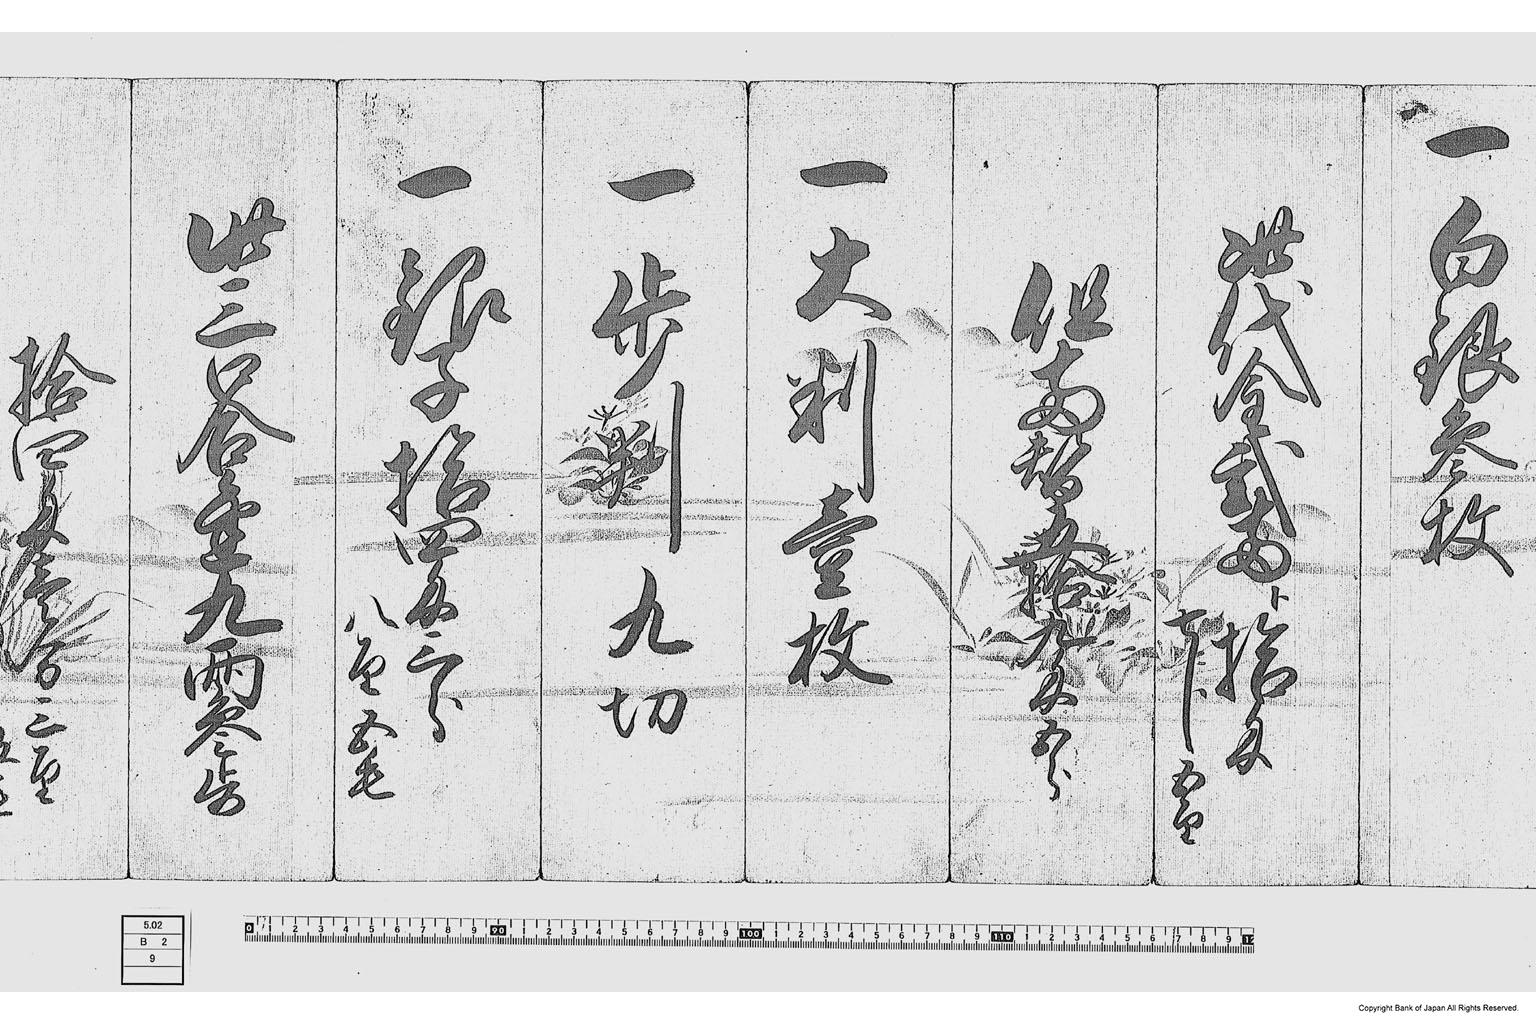 一白銀参枚
此代金弐両ト拾匁
七分五厘
但両替五拾九匁五分
一大判壱枚
一歩判九切
一銀子拾四匁三分
八厘五毛
此三口合金九両参歩
拾四匁壱分三厘
5.02
B 2
9
0 1 2 3 4 5 6 7 8 9 90 1 2 3 4 5 6 7 8 9 100 1 2 3 4 5 6 7 8 9 110 1 2 3 4 5 6 7 8 9 12
Copyright Bank of Japan All Rights Reserved.